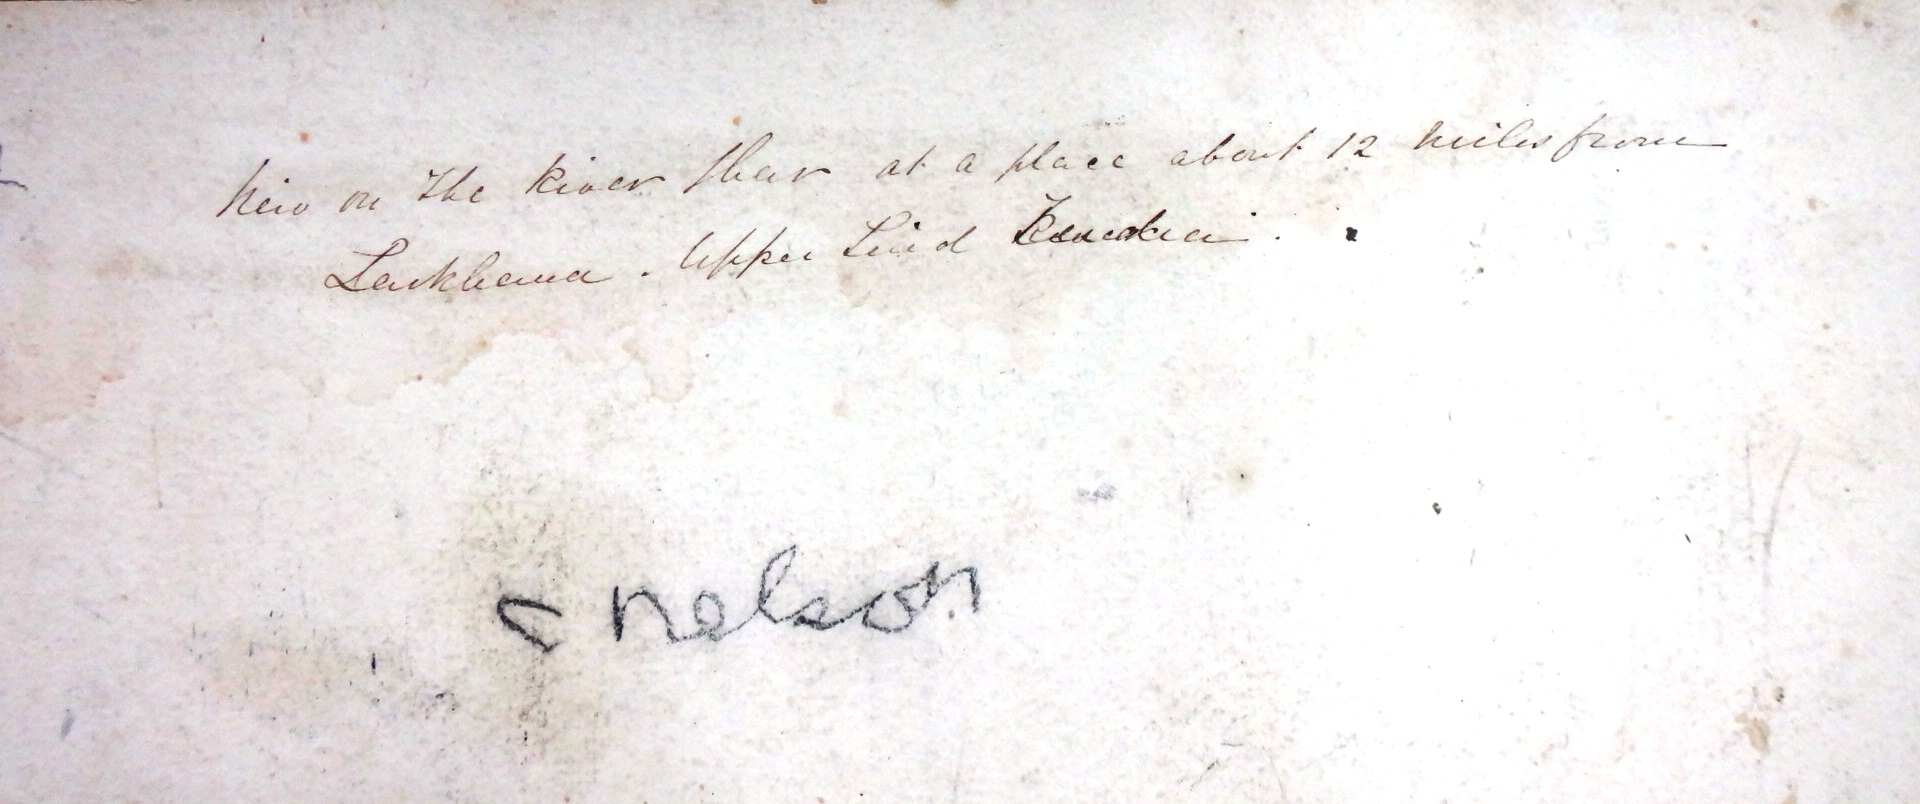 View on the River Ghar at a place about 12 miles from
Larkhana. Upper Sind
C Nelson